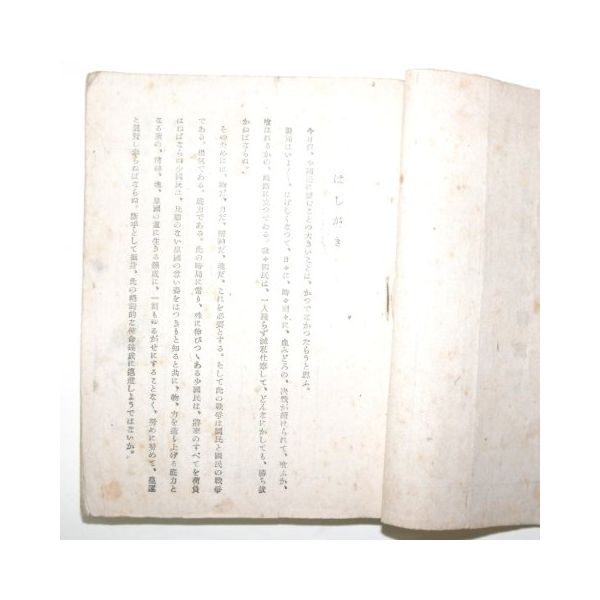 はしがき
今日ほど少國民に望むことの大きいことは、かつてなかつたらうと思ふ。
時局はいよ〳〵はげしくなつて、日々に、時々刻々に、血みどろの、決戰が續けられて、喰ふか、
喰はれるかの、岐路に立つてゐる。我々國民は、一人殘らず滅私仕奉して、どんなにかしても、勝ち拔
かねばならぬ。
そのためには、物だ、力だ、精神だ、魂だ、これを必要とする。そして此の戰爭は國民と國民の戰爭
である。根氣である。底力である。此の時局に當り、殊に伸びつゝある少國民は、將來のすべてを荷負
はねばならぬ少國民は、比類のない皇國の尊い姿をはつきりと知ると共に、物、力を造り上げる底力と
なる所の、精神、魂、皇國の道に生きる鍊成に、一刻もゆるがせにすることなく、努めに努めて、皇運
を翼贊しまゐらねばならぬ。斷乎として挺身、此の
的な使命達成に邁進しようではないか。